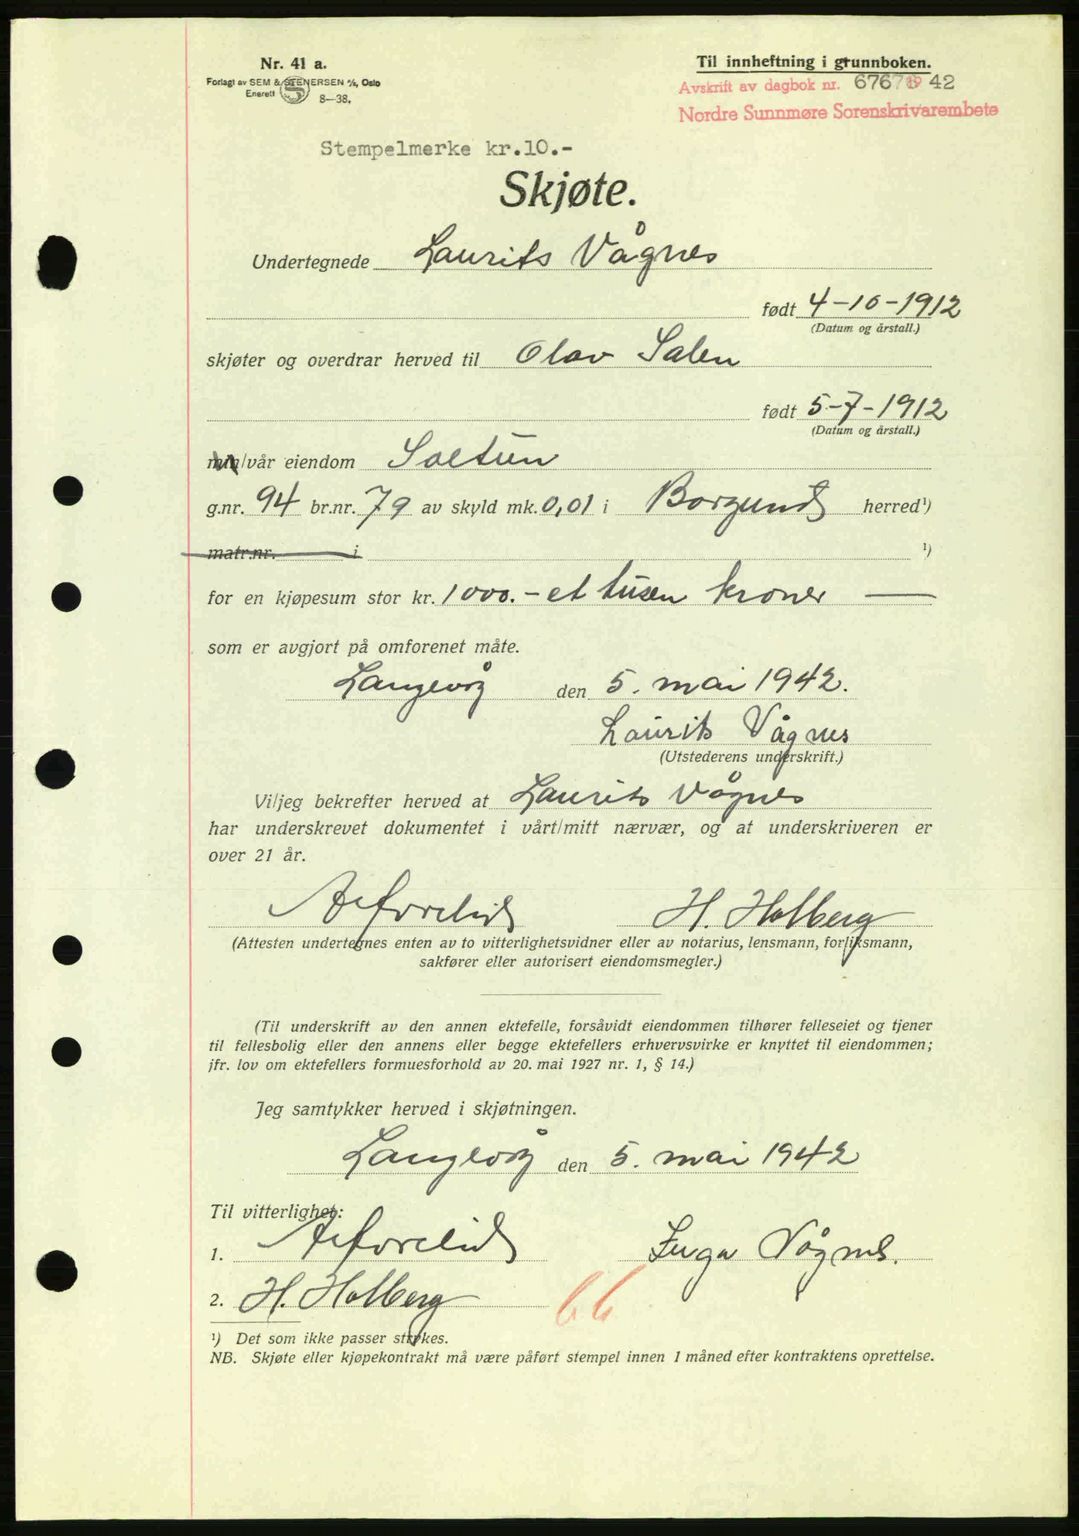 Nr. 41 a.
Forlagt av SEM & STENERSEN A/S, Oslo
Enerett 8—38.
Til innheftning i grunnboken.
Avskrift av dagbok nr. 676 19 42
Nordre Sunnmøre Sorenskrivarembete
Stempelmerke kr.10.-
Skjøte.
Undertegnede Laurits Vågnes
født 4-10-1912
(Datum og årstall.)
skjøter og overdrar herved til Olav Salen
født 5-7-1912
(Datum og årstall.)
min/vår eiendom Soltun
g.nr. 94 br.nr. 79 av skyld mk. 0,01 i Borgund herred¹)
matr.nr. i ¹)
for en kjøpesum stor kr. 1000.- et tusen kroner —
som er avgjort på omforenet måte.
Langevåg den 5. mai 1942.
Laurits Vågnes
(Utstederens underskrift.)
Vi/jeg bekrefter herved at Laurits Vågnes
har underskrevet dokumentet i vårt/mitt nærvær, og at underskriveren er
over 21 år.
H. Holberg
(Attesten undertegnes enten av to vitterlighetsvidner eller av notarius, lensmann, forliksmann,
sakfører eller autorisert eiendomsmegler.)
(Til underskrift av den annen ektefelle, forsåvidt eiendommen tilhører felleseiet og tjener
til fellesbolig eller den annens eller begge ektefellers erhvervsvirke er knyttet til eiendommen;
jfr. lov om ektefellers formuesforhold av 20. mai 1927 nr. 1, § 14.)
Jeg samtykker herved i skjøtningen.
Langevåg den 5. mai 1942
Til vitterlighet:
1. Inga Vågnes.
2. H. Holberg 66
¹) Det som ikke passer strykes.
NB. Skjøte eller kjøpekontrakt må være påført stempel innen 1 måned efter kontraktens oprettelse.